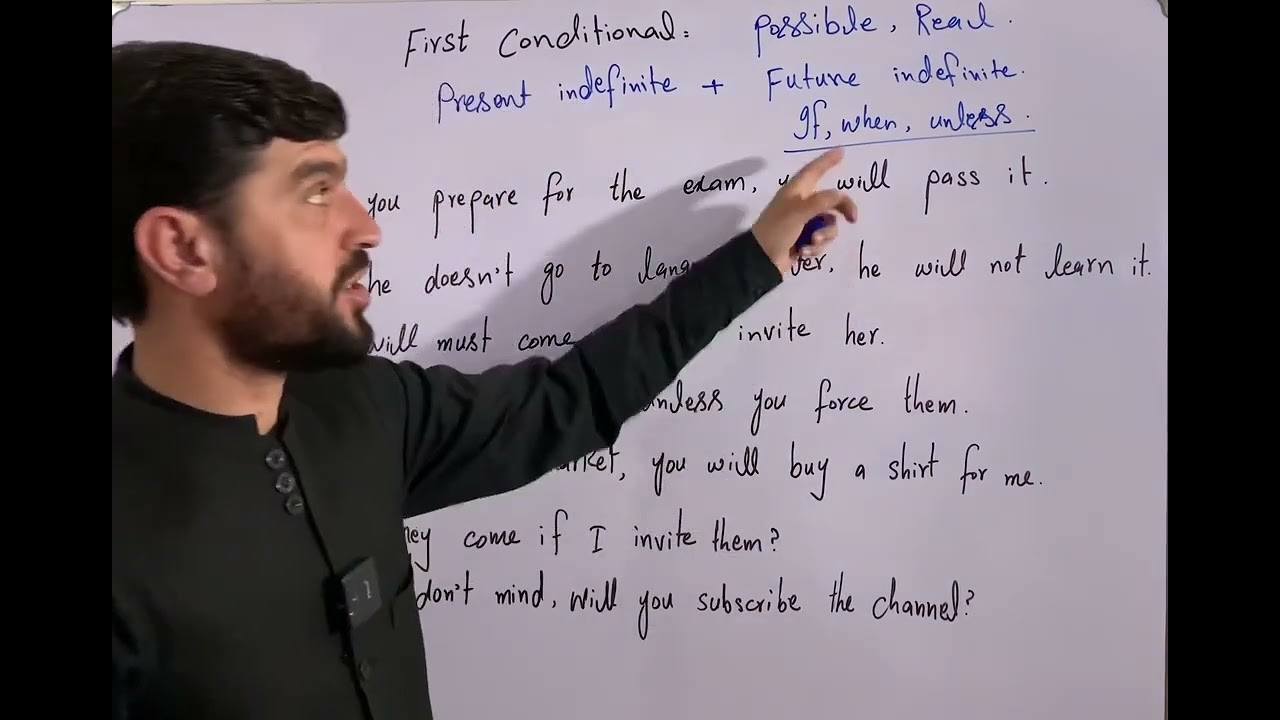 First Conditional: Possible, Real.
Present indefinite + Future indefinite.
If, when, unless.
you prepare for the exam, will pass it.
he doesn't go to he will not learn it.
will must come invite her.
unless you force them.
you will buy a shirt for me.
come if I invite them?
don't mind, will you subscribe the channel?